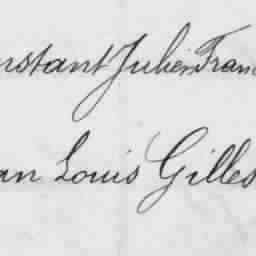 nstant Julien Fran
an Louis Gilles